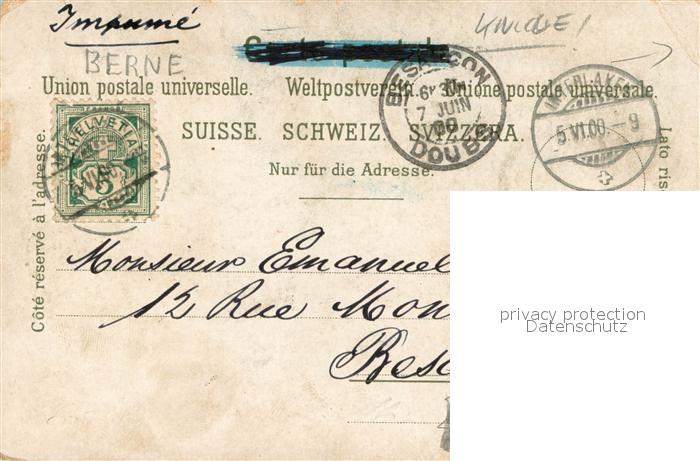 Imprimé
BERNE
Union postale universelle. Weltpostverein. Unione postale universale.
SUISSE. SCHWEIZ. SVIZZERA.
Nur für die Adresse.
Côté réservé à l'adresse.
Lato rise
HELVETIA
5
BESANCON
7 JUIN
DOUBS
INTERLAKEN
5.VI.00.-9
Monsieur Emanuel
12 Rue Mon
Besa
privacy protection
Datenschutz